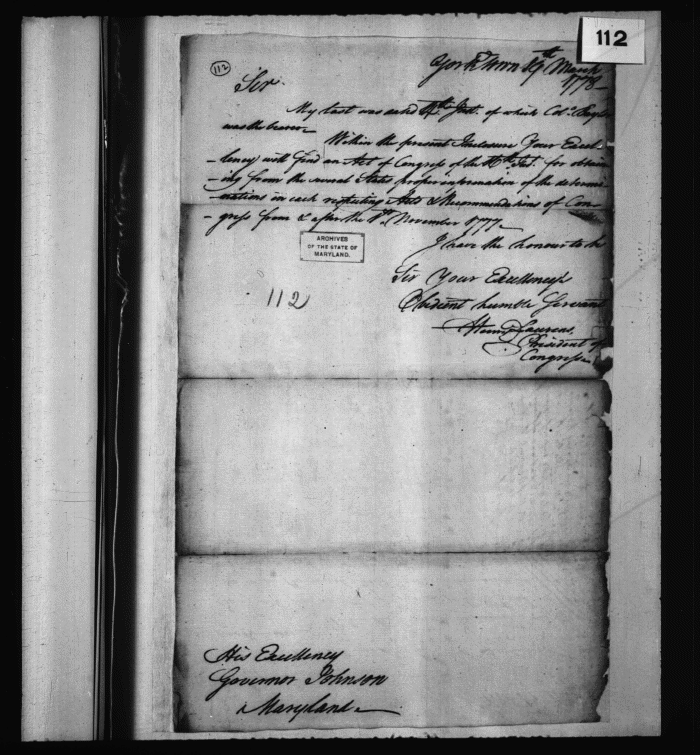 112
112
York Town 19th March
1778—
Sir
My last was dated of which Colo.
was the bearer—
Within the present Inclosure Your Excel
-lency will find an Act of Congress of the for obtain
-ing from the several States proper information of the determi
-nations in each respecting Acts & Recommendations of Con
-gress from & after the 1st. November 1777.—
I have the honour to be
ARCHIVES
OF THE STATE OF
MARYLAND.
Sir Your Excellency's
112
Obedient humble Servant
Henry Laurens.
President of
Congress.
His Excellency
Governor Johnson
Maryland—